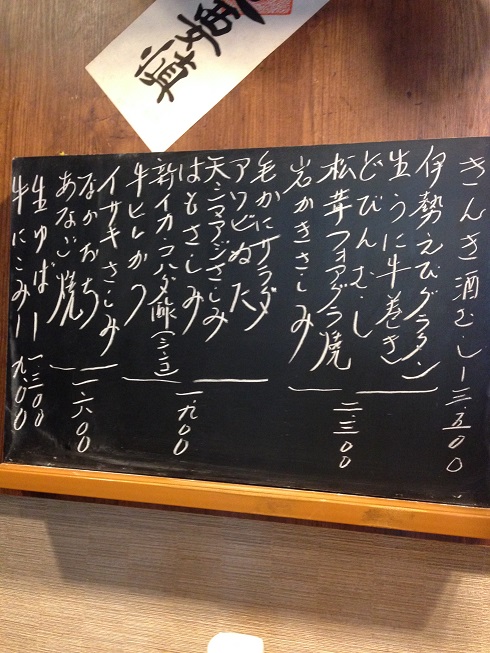 きんき酒むし ー 三.五〇〇
伊勢えびグラタン
生うに牛巻き
どびんむし
松茸フォアグラ焼
岩かきさしみ
二.三〇〇
毛かにサラダ
アワビぬた
天シマアジさしみ
はもさしみ
新イカ
牛ヒレかつ
一.九〇〇
イサキさしみ
なかおち
あなご焼
一.六〇〇
生ゆば ー 一.三〇〇
牛にこみ ー 九〇〇